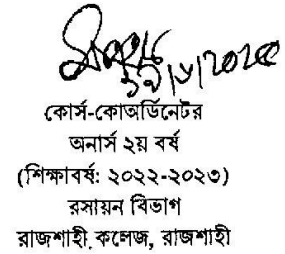 কোর্স-কোঅর্ডিনেটর
অনার্স ২য় বর্ষ
(শিক্ষাবর্ষ: ২০২২-২০২৩)
রসায়ন বিভাগ
রাজশাহী কলেজ, রাজশাহী